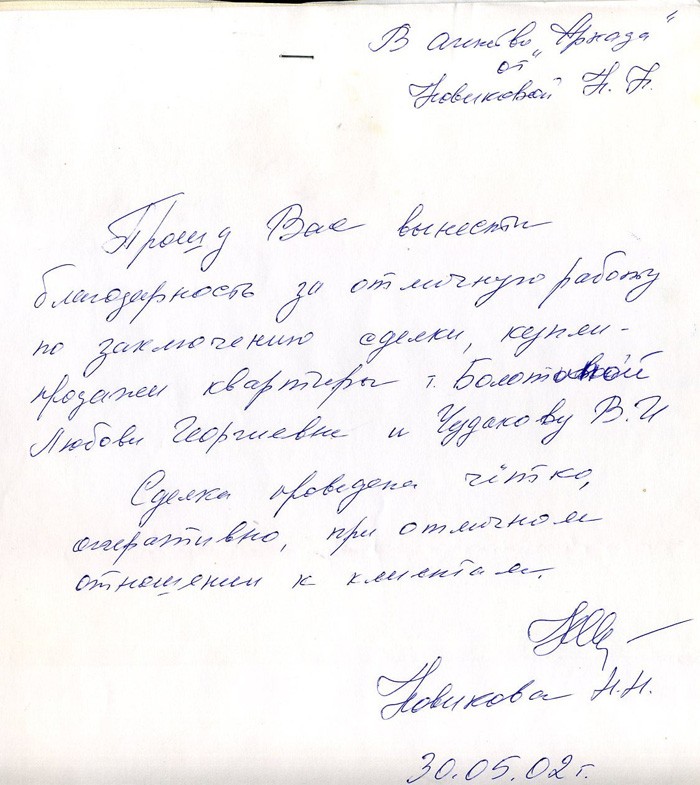 В агентство „Аркада"
от
Новиковой Н. Н.
Прошу Вас вынести
благодарность за отличную работу
по заключению сделки, купли-
продажи квартиры т. Болотовой
Любови Георгиевне и Чудакову В. И
Сделка проведена чётко,
оперативно, при отличном
отношении к клиентам.
Новикова Н.Н.
30.05.02 г.